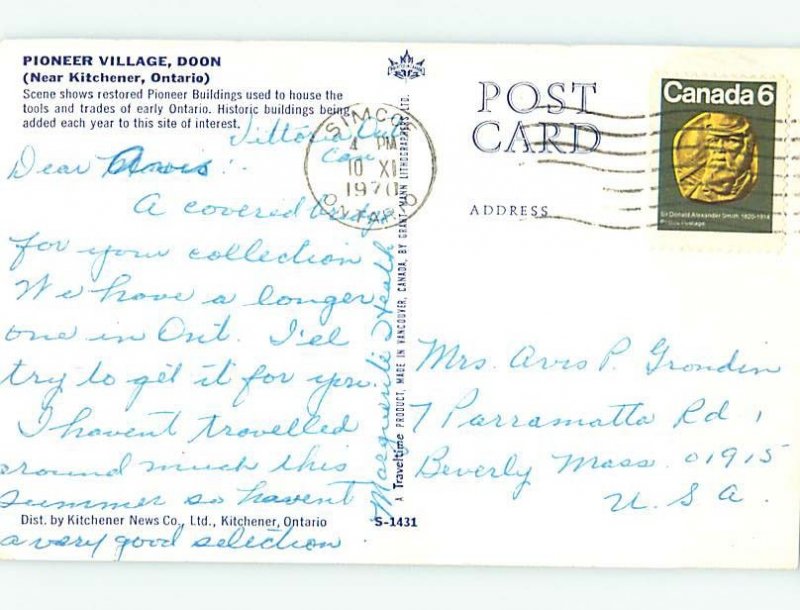 PIONEER VILLAGE, DOON
(Near Kitchener, Ontario)
Scene shows restored Pioneer Buildings used to house the
tools and trades of early Ontario. Historic buildings being
added each year to this site of interest.
Vittoria Ont
Can
Dear Avis:
A covered bridge
for your collection
We have a longer
one in Ont. I'el
try to get it for you.
I havent travelled
around much this
summer so havent
a very good selection
Marguerite Heath
Dist. by Kitchener News Co., Ltd., Kitchener, Ontario
S-1431
A Traveltime PRODUCT, MADE IN VANCOUVER, CANADA, BY GRANT-MANN LITHOGRAPHERS LTD.
SIMCOE
4 PM
10 XI
1970
ONTARIO
POST
CARD
ADDRESS
Canada 6
Sir Donald Alexander Smith, 1820-1914
Postes Postage
Mrs. Avis P. Grondin
7 Parramatta Rd,
Beverly Mass. 01915
U.S.A.